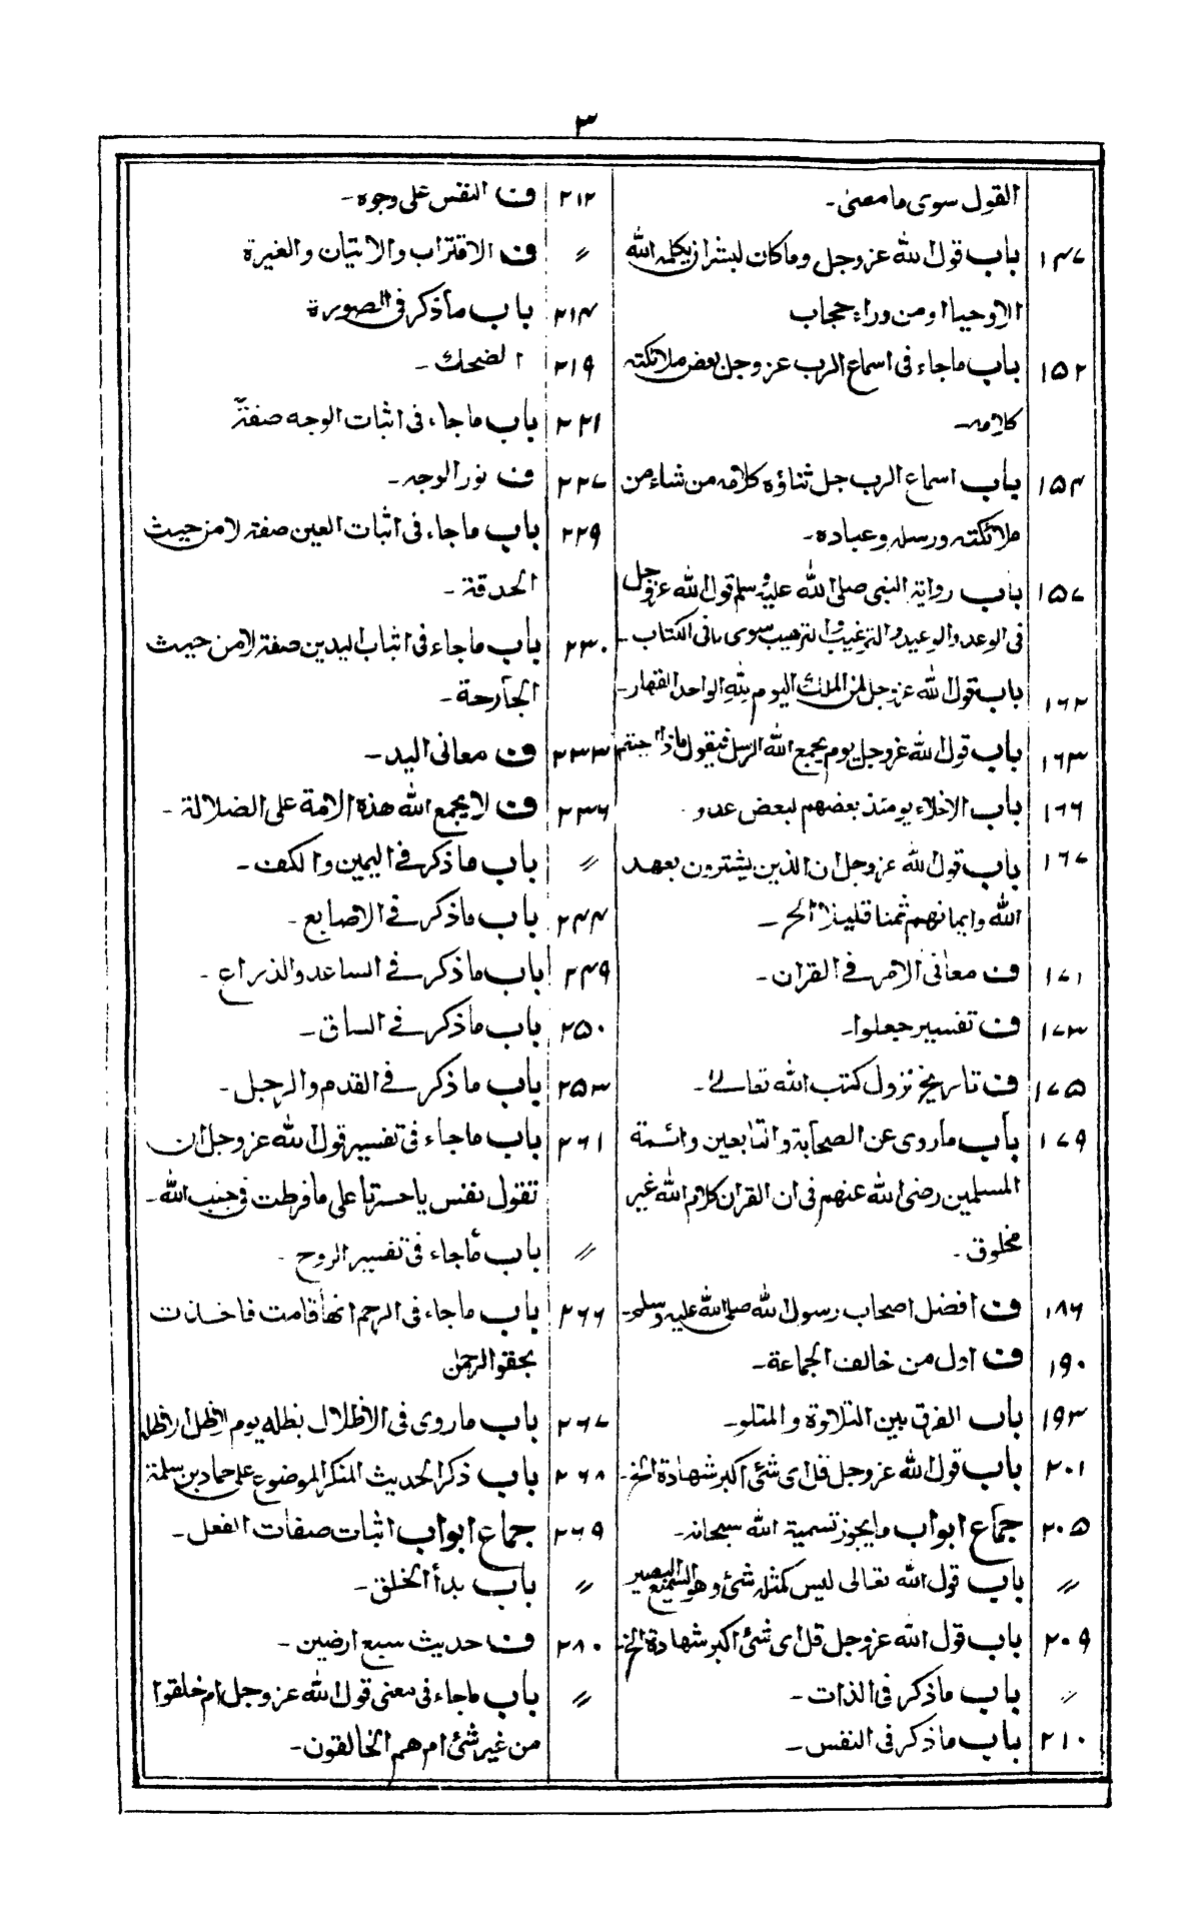 ٣
القول سوى ما مضى۔
١٤٧ باب قول الله عزوجل وما كان لبشر ان يكلمه الله
الا وحيا او من وراء حجاب
١٥٢ باب ما جاء فى اسماع الرب عزوجل بعض ملائكته
كلامه۔
١٥٤ باب اسماع الرب جل ثناؤه كلامه من شاء من
ملائكته ورسله وعباده۔
١٥٧ باب رواية النبى صلى الله عليه وسلم قول الله عزوجل
فى الوعد والوعيد والترغيب والترهيب سوى ما فى الكتاب۔
١٦٢ باب قول الله عزوجل لمن الملك اليوم لله الواحد القهار۔
١٦٣ باب قول الله عزوجل يوم يجمع الله الرسل فيقول ماذا اجبتم
١٦٦ باب الاخلاء يومئذ بعضهم لبعض عدو۔
١٦٧ باب قول الله عزوجل ان الذين يشترون بعهد
الله وايمانهم ثمنا قليلا الخ۔
١٧١ ف معانى الامر فے القران۔
١٧٣ ف تفسير جعلوا۔
١٧٥ ف تاريخ نزول كتب الله تعالے۔
١٧٩ باب ما روى عن الصحابة والتابعين وائمة
المسلمين رضى الله عنهم فى ان القران كلام الله غير
مخلوق۔
١٨٦ ف افضل اصحاب رسول الله صلى الله عليه وسلم۔
١٩٠ ف اول من خالف الجماعة۔
١٩٣ باب الفرق بين التلاوة والمتلو۔
٢٠١ باب قول الله عزوجل قل اى شئ اكبر شهادة الخ۔
٢٠٥ جماع ابواب ما يجوز تسمية الله سبحانه۔
〃 باب قول الله تعالى ليس كمثله شئ وهو السميع البصير
٢٠٩ باب قول الله عزوجل قل اى شئ اكبر شهادة الخ۔
〃 باب ما ذكر فى الذات۔
٢١٠ باب ما ذكر فى النفس۔
٢١٢ ف النفس على وجوه۔
〃 ف الاقتراب والاتيان والغيرة
٢١٤ باب ما ذكر فى الصورة
٢١٩ الضحك۔
٢٢١ باب ما جاء فى اثبات الوجه صفة
٢٢٧ ف نور الوجه۔
٢٢٩ باب ما جاء فى اثبات العين صفة لا من حيث
الحدقة۔
٢٣٠ باب ما جاء فى اثباب اليدين صفة لا من حيث
الجارحة۔
٢٣٣ ف معانى اليد۔
٢٣٦ ف لا يجمع الله هذه الامة على الضلالة۔
〃 باب ما ذكر فے اليمين والكف۔
٢٤٤ باب ما ذكر فے الاصابع۔
٢٤٩ باب ما ذكر فے الساعد والذراع۔
٢٥٠ باب ما ذكر فے الساق۔
٢٥٣ باب ما ذكر فے القدم والرجل۔
٢٦١ باب ما جاء فى تفسير قول الله عزوجل ان
تقول نفس يا حسرتا على ما فرطت فى جنب الله۔
〃 باب ما جاء فى تفسير الروح۔
٢٦٦ باب ما جاء فى الرحم انها قامت فاخذت
بحقو الرحمن
٢٦٧ باب ما روى فى الاظلال بظله يوم لا ظل الا ظله
٢٦٨ باب ذكر الحديث المنكر الموضوع على حماد بن سلمة
٢٦٩ جماع ابواب اثبات صفات الفعل۔
〃 باب بدأ الخلق۔
٢٨٠ ف حديث سبع ارضين۔
〃 باب ما جاء فى معنى قول الله عزوجل ام خلقوا
من غير شئ ام هم الخالقون۔